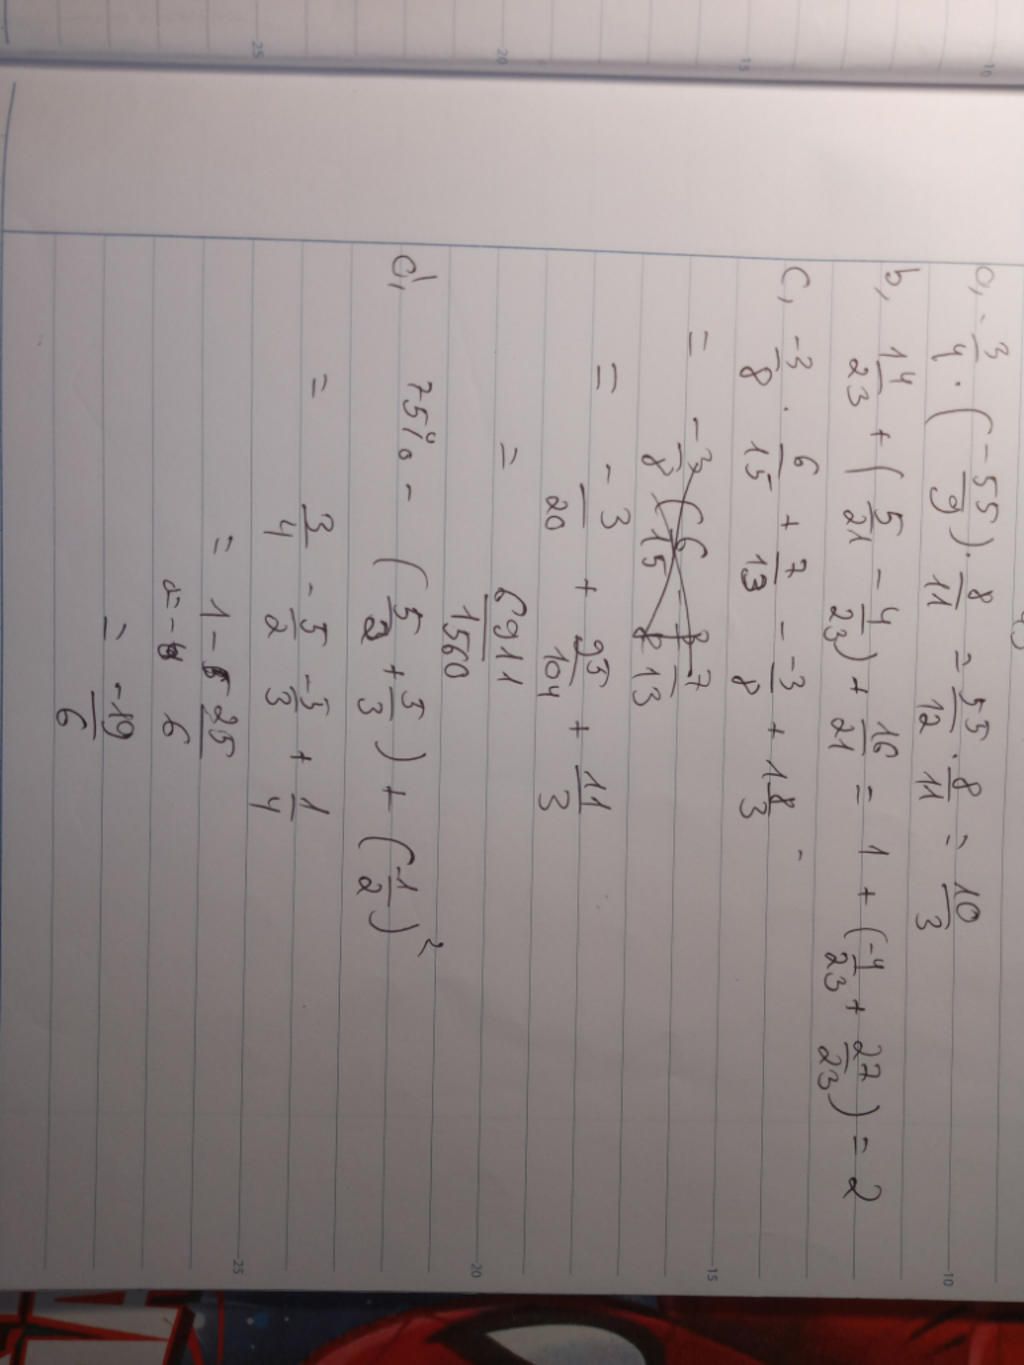 a, -3/4 · (-55/9) · 8/11 = 55/12 · 8/11 = 10/3
b, 14/23 + (5/21 - 4/23) + 16/21 = 1 + (-4/23 + 27/23) = 2
c, -3/8 · 6/15 + 7/13 - -3/8 + 1 8/3
= -3/8
= -3/20 + 95/104 + 11/3
= 6911/1560
d, 75% - (5/2 + 5/3) + (-1/2)²
= 3/4 - 5/2 - 5/3 + 1/4
= 1 - 25/6
= -19/6
10
15
20
25